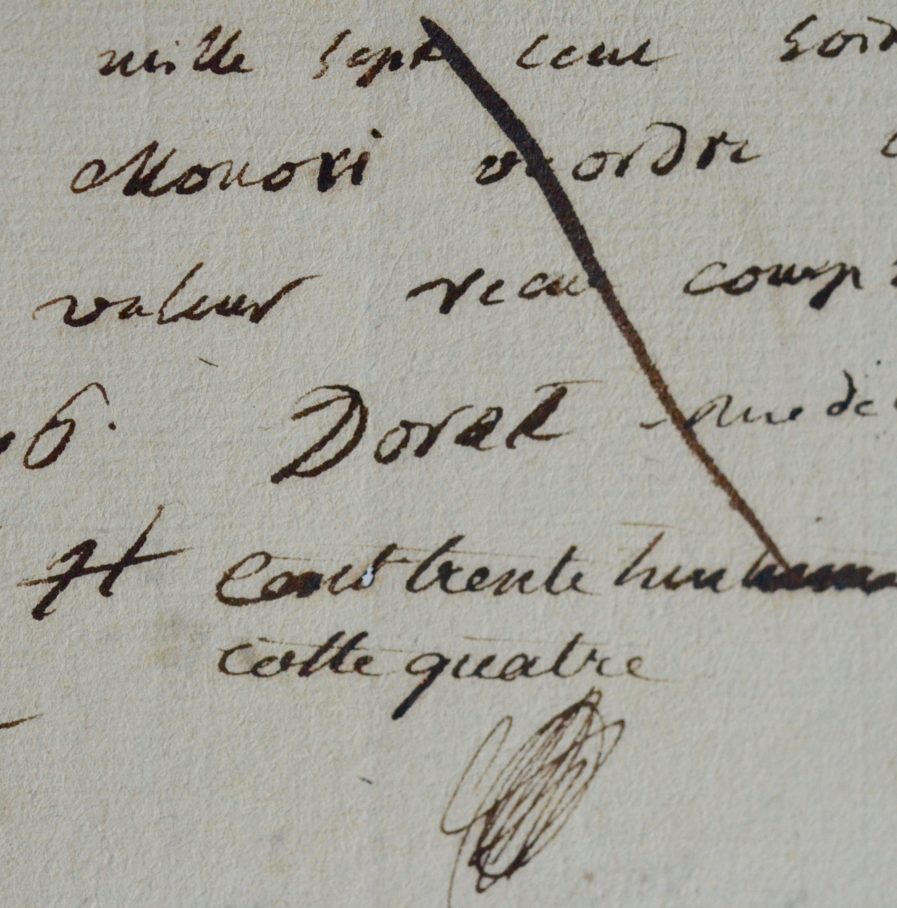 mille sept cent soix
Monori ou ordre
valeur recue comp
6. Dorat - rue de
Cent trente huit
cotte quatre